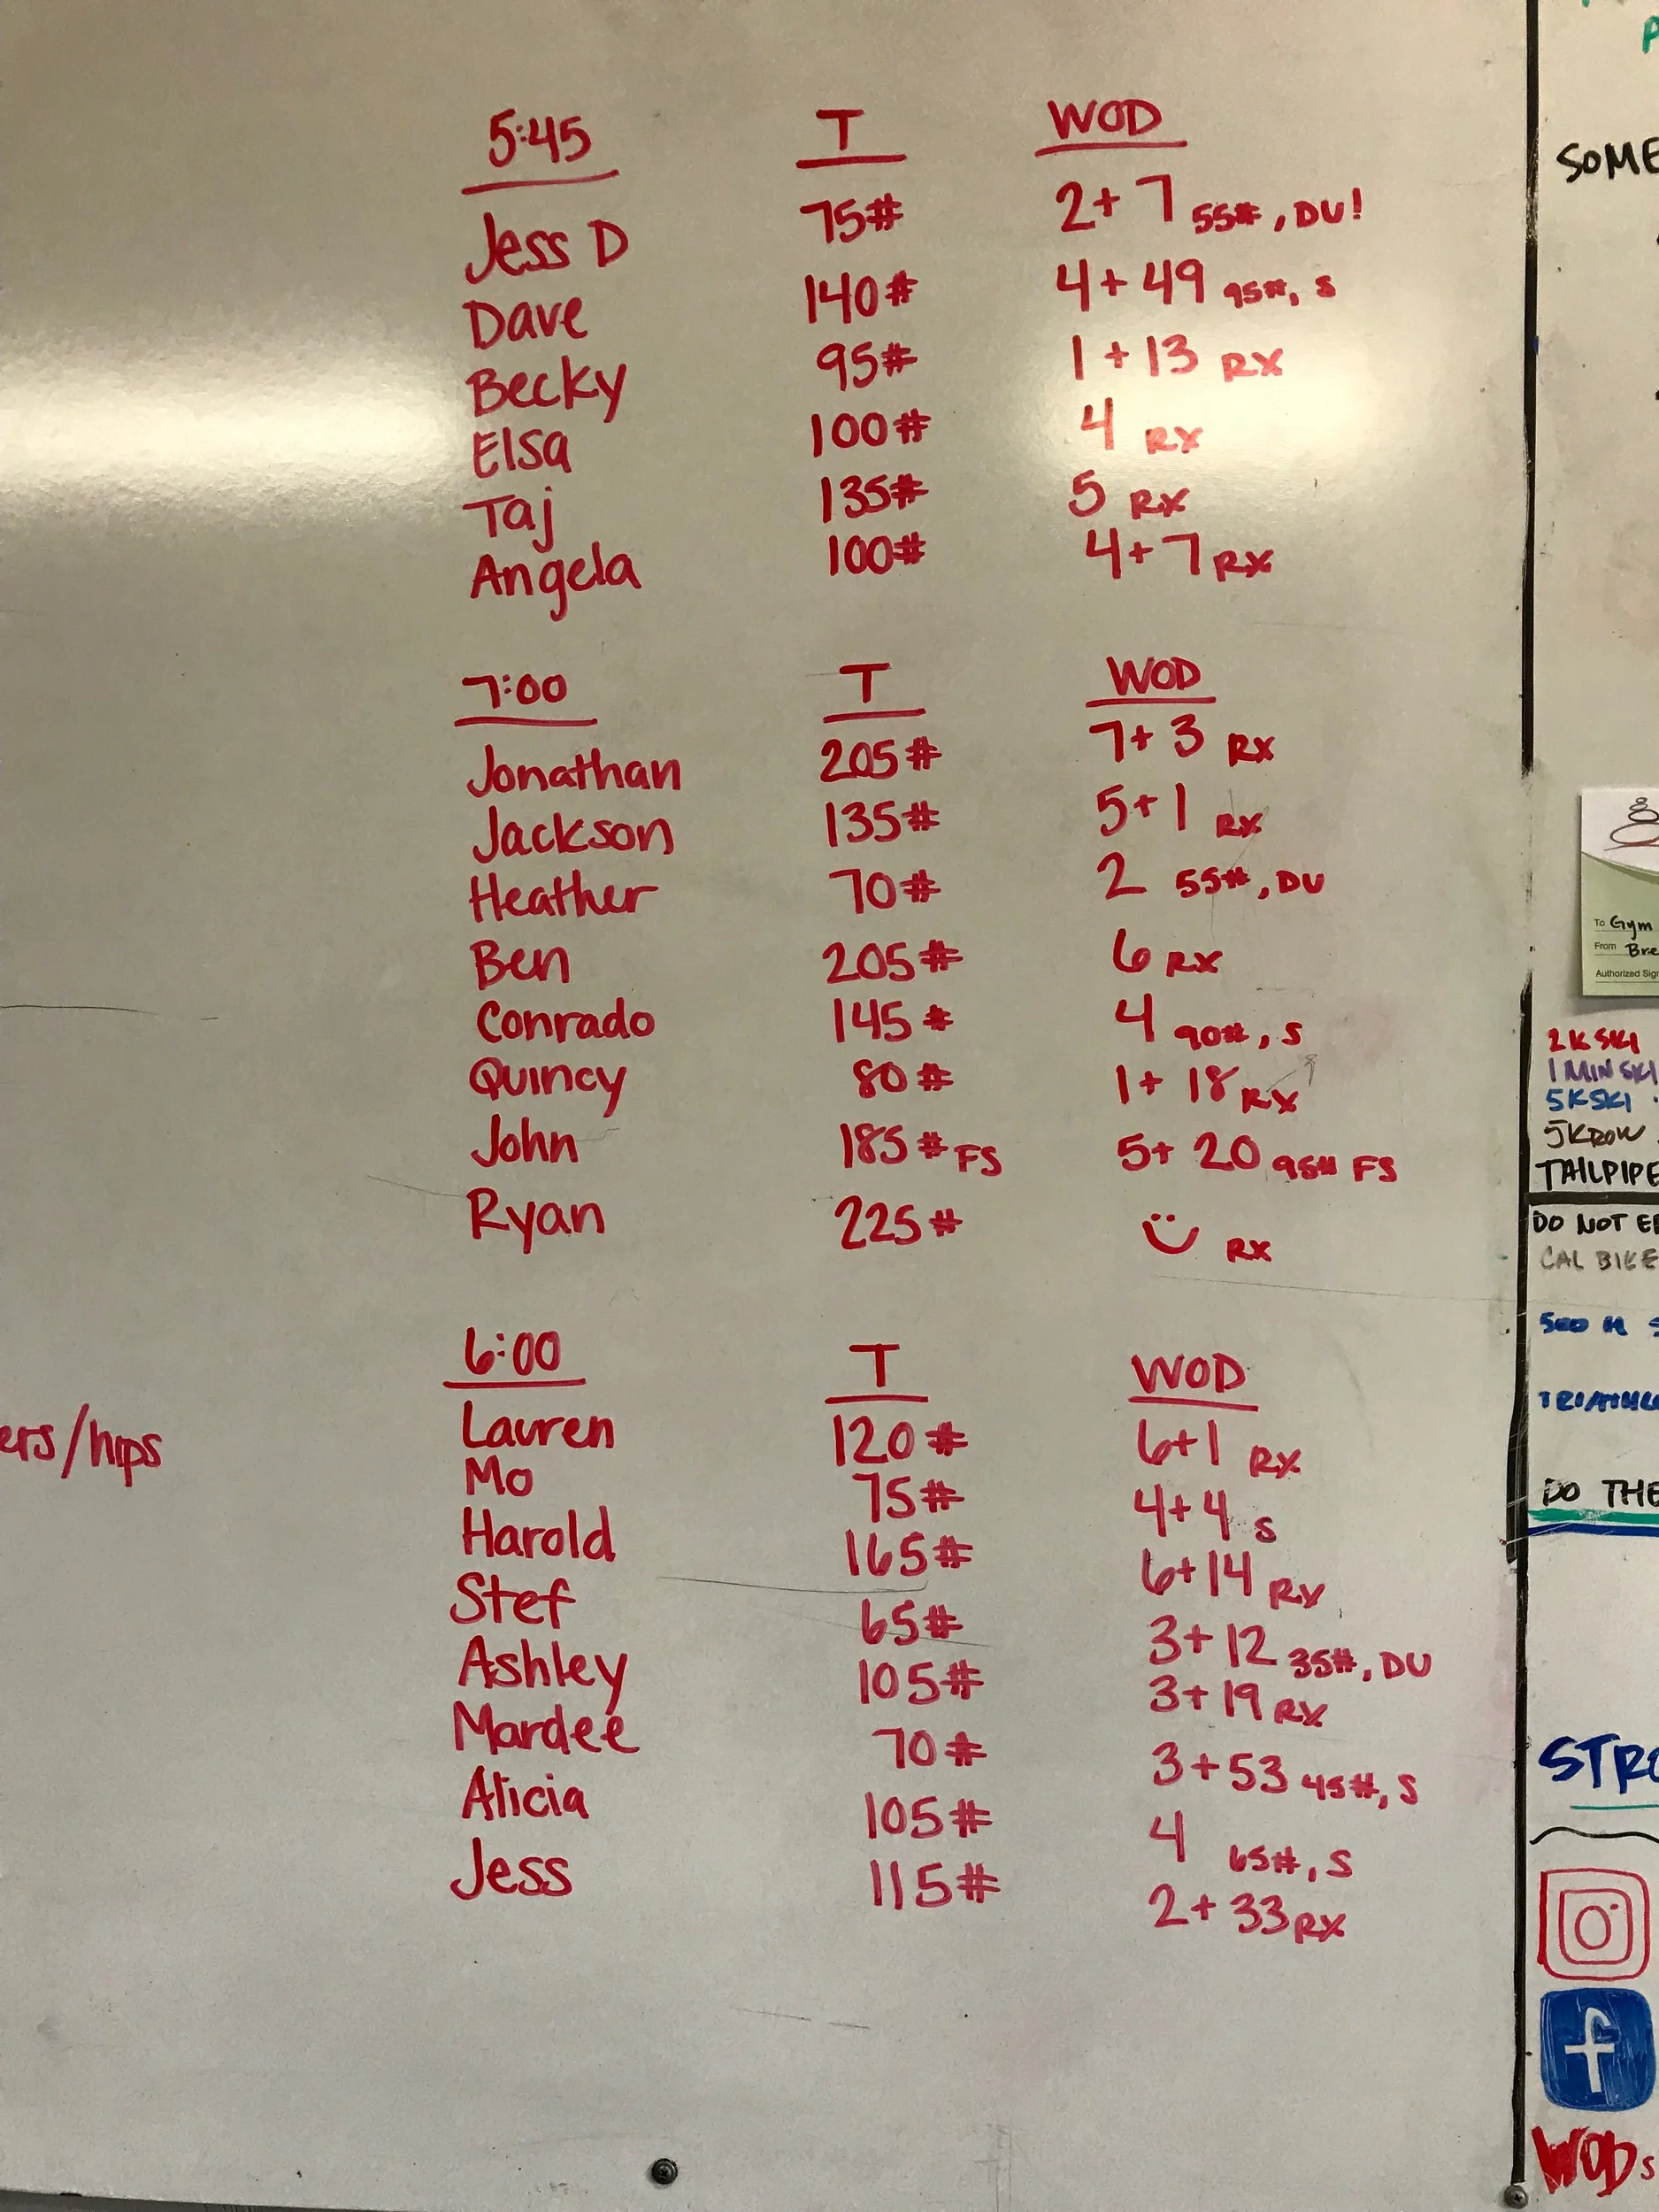 5:45 T WOD
Jess D 75# 2+7 55#, DU!
Dave 140# 4+49 95#, S
Becky 95# 1+13 RX
Elsa 100# 4 RX
Taj 135# 5 RX
Angela 100# 4+7 RX
7:00 T WOD
Jonathan 205# 7+3 RX
Jackson 135# 5+1 RX
Heather 70# 2 55#, DU
Ben 205# 6 RX
Conrado 145# 4 90#, S
Quincy 80# 1+18 RX
John 185# FS 5+20 95# FS
Ryan 225# RX
6:00 T WOD
Lauren 120# 6+1 RX
Mo 75# 4+4 S
Harold 165# 6+14 RX
Stef 65# 3+12 35#, DU
Ashley 105# 3+19 RX
Mardee 70# 3+53 45#, S
Alicia 105# 4 65#, S
Jess 115# 2+33 RX
ers/hips
SOME
To Gym
From Bre
Authorized Sig
2K SKI
1 MIN SKI
5K SKI
5K ROW
TAILPIPE
DO NOT
CAL BIKE
500 M
DO THE
STRO
f
WODs